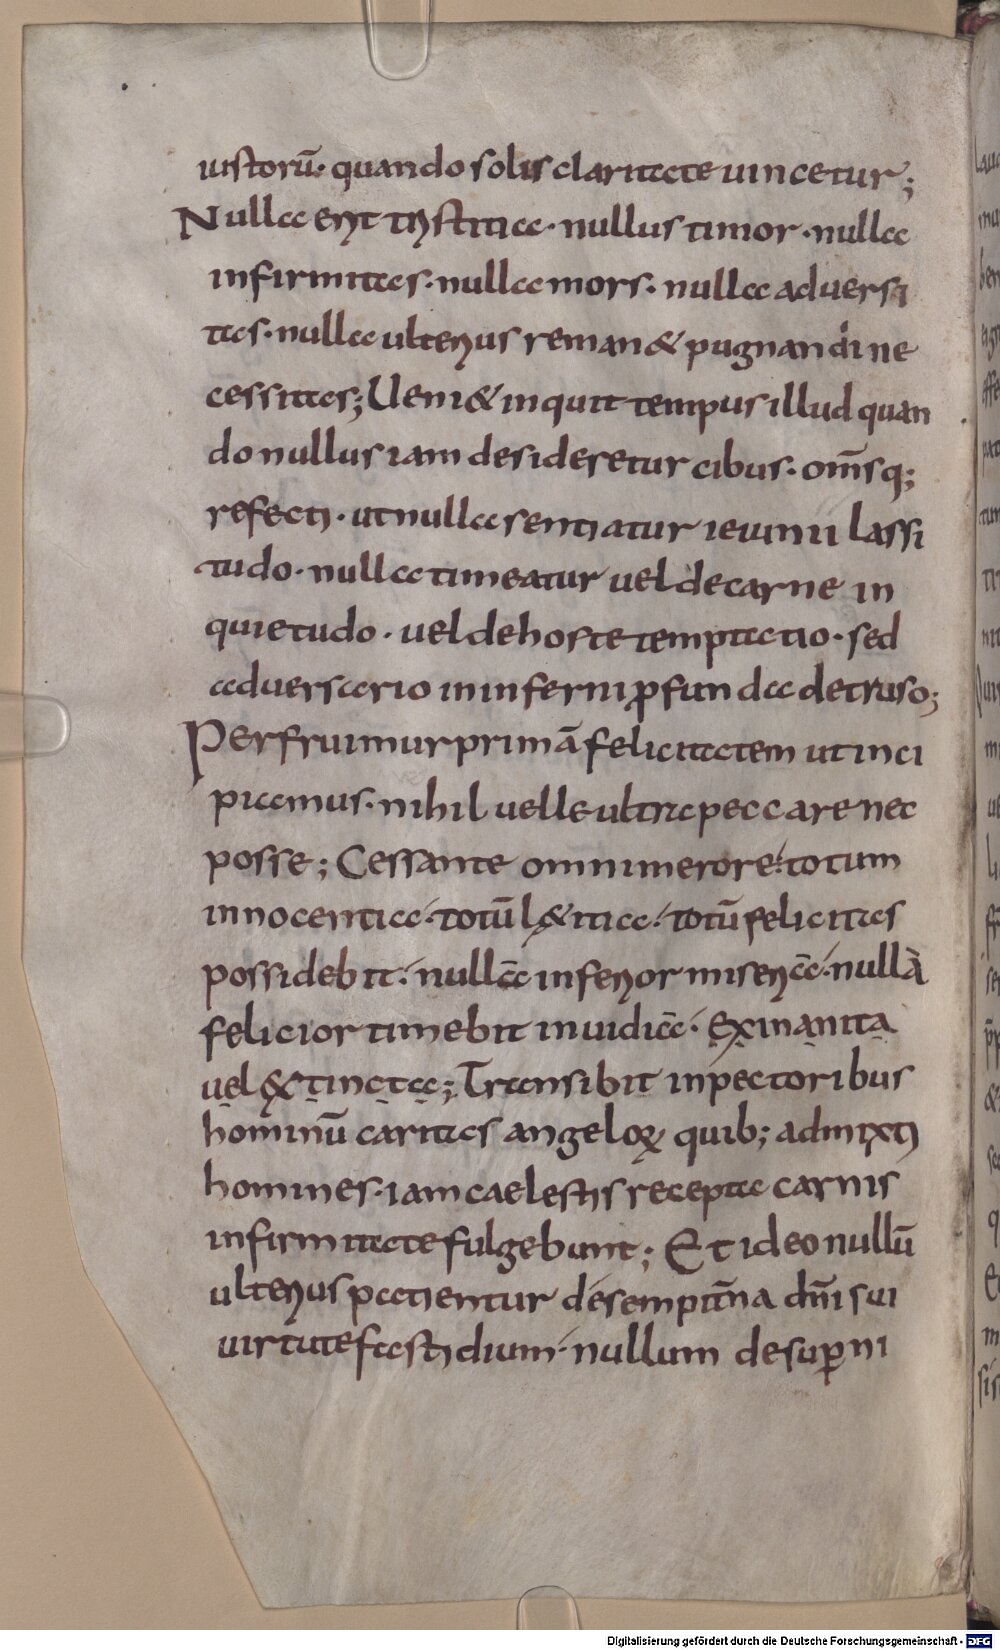 iustorū· quando solis claritate uincetur;
Nulla erit tristitia· nullus timor· nulla
infirmitas· nulla mors· nulla aduersi
tas· nulla ulterius reman& pugnandi ne
cessitas; Ueni& inquit tempus illud quan
do nullus iam desideretur cibus· om̄sq;
refecti· ut nulla sentiatur ieiunii lassi
tudo· nulla timeatur uel de carne in
quietudo· uel de hoste temptatio· sed
aduersario in inferni ꝓfunda detruso;
Perfruimur primā felicitatem ut inci
piamus· nihil uelle ultra peccare nec
posse; Cessante omni merore· totum
innocentia· totū l&itia· totū felicitas
possidebit· nullā inferior miseriā· nullā
felicior timebit inuidiā· exinanita
uel &tincta; Transibit in pectoribus
hominū caritas angeloꝝ quib; admixti
homines· iam caelestis recepta carnis
infirmitate fulgebunt; Et ideo nullū
ulterius patientur de sempit̄na dn̄i sui
uirtute fastidium· nullum de suꝑni
laua
Digitalisierung gefördert durch die Deutsche Forschungsgemeinschaft - DFG